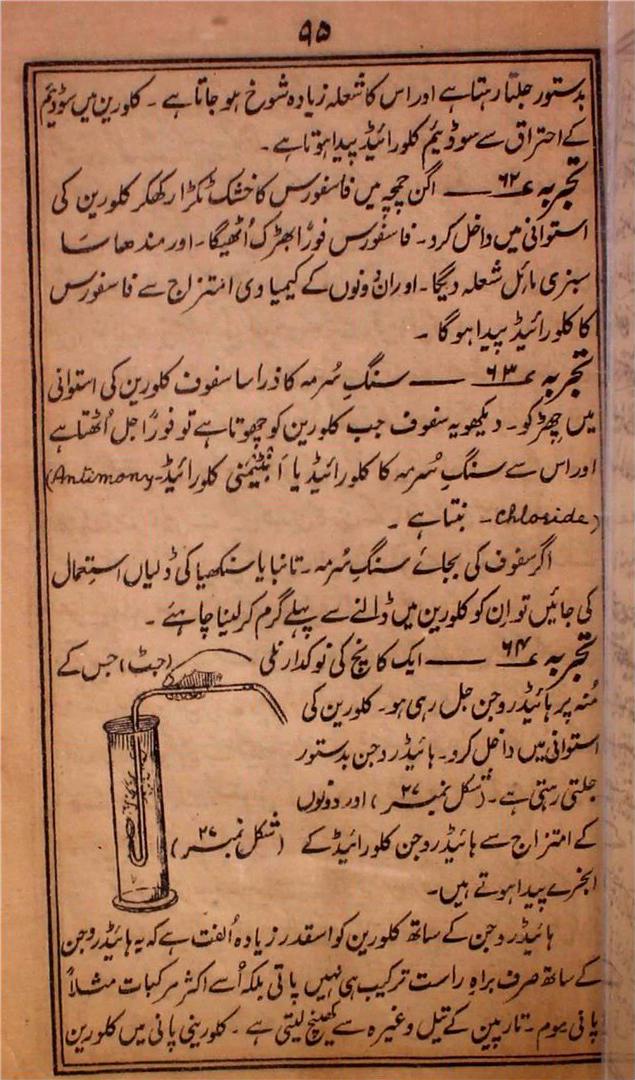 ۹۵
بدستور جلتا رہتا ہے اور اس کا شعلہ زیادہ شوخ ہو جاتا ہے ۔ کلورین میں سوڈیم
کے احتراق سے سوڈیم کلورائیڈ پیدا ہوتا ہے ۔
تجربہ ع۶۲ — اگن چمچہ میں فاسفورس کا خشک ٹکڑا رکھکر کلورین کی
استوانی میں داخل کرد ۔ فاسفورس فوراً بھڑک اُٹھیگا ۔ اور مندھا سا
سبزی مائل شعلہ دیگا ۔ اور ان دونوں کے کیمیاوی امتزاج سے فاسفورس
کا کلورائیڈ پیدا ہوگا ۔
تجربہ ع۶۳ — سنگِ سُرمہ کا ذرا سا سفوف کلورین کی استوانی
میں چھڑکو ۔ دیکھو یہ سفوف جب کلورین کو چھوتا ہے تو فوراً جل اُٹھتا ہے
اور اس سے سنگِ سُرمہ کا کلورائیڈ یا اَنٹیمنی کلورائیڈ (Antimony-
chloride) بنتا ہے ۔
اگر سفوف کی بجائے سنگِ سُرمہ ۔ تانبا یا سنکھیا کی ڈلیاں استعمال
کی جائیں تو اِن کو کلورین میں ڈالنے سے پہلے گرم کر لینا چاہئے ۔
تجربہ ع۶۴ — ایک کانچ کی نوکدار نلی (جٹ) جس کے
مُنہ پر ہائیڈروجن جل رہی ہو ۔ کلورین کی
استوانی میں داخل کرد ۔ ہائیڈروجن بدستور
جلتی رہتی ہے ۔ (شکل نمبر ۲۷) اور دونوں
کے امتزاج سے ہائیڈروجن کلورائیڈ کے (شکل نمبر ۲۷)
ابخرے پیدا ہوتے ہیں ۔
ہائیڈروجن کے ساتھ کلورین کو اسقدر زیادہ اُلفت ہے کہ یہ ہائیڈروجن
کے ساتھ صرف براہِ راست ترکیب ہی نہیں پاتی بلکہ اُسے اکثر مرکبات مثلاً
پانی ۔ موم ۔ تارپین کے تیل وغیرہ سے کھینچ لیتی ہے ۔ کلورینی پانی میں کلورین